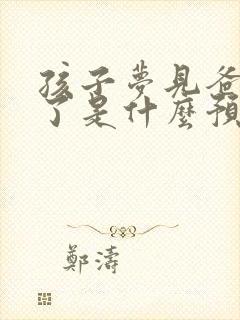 孩子夢見爸
了是什麼預
鄭濤